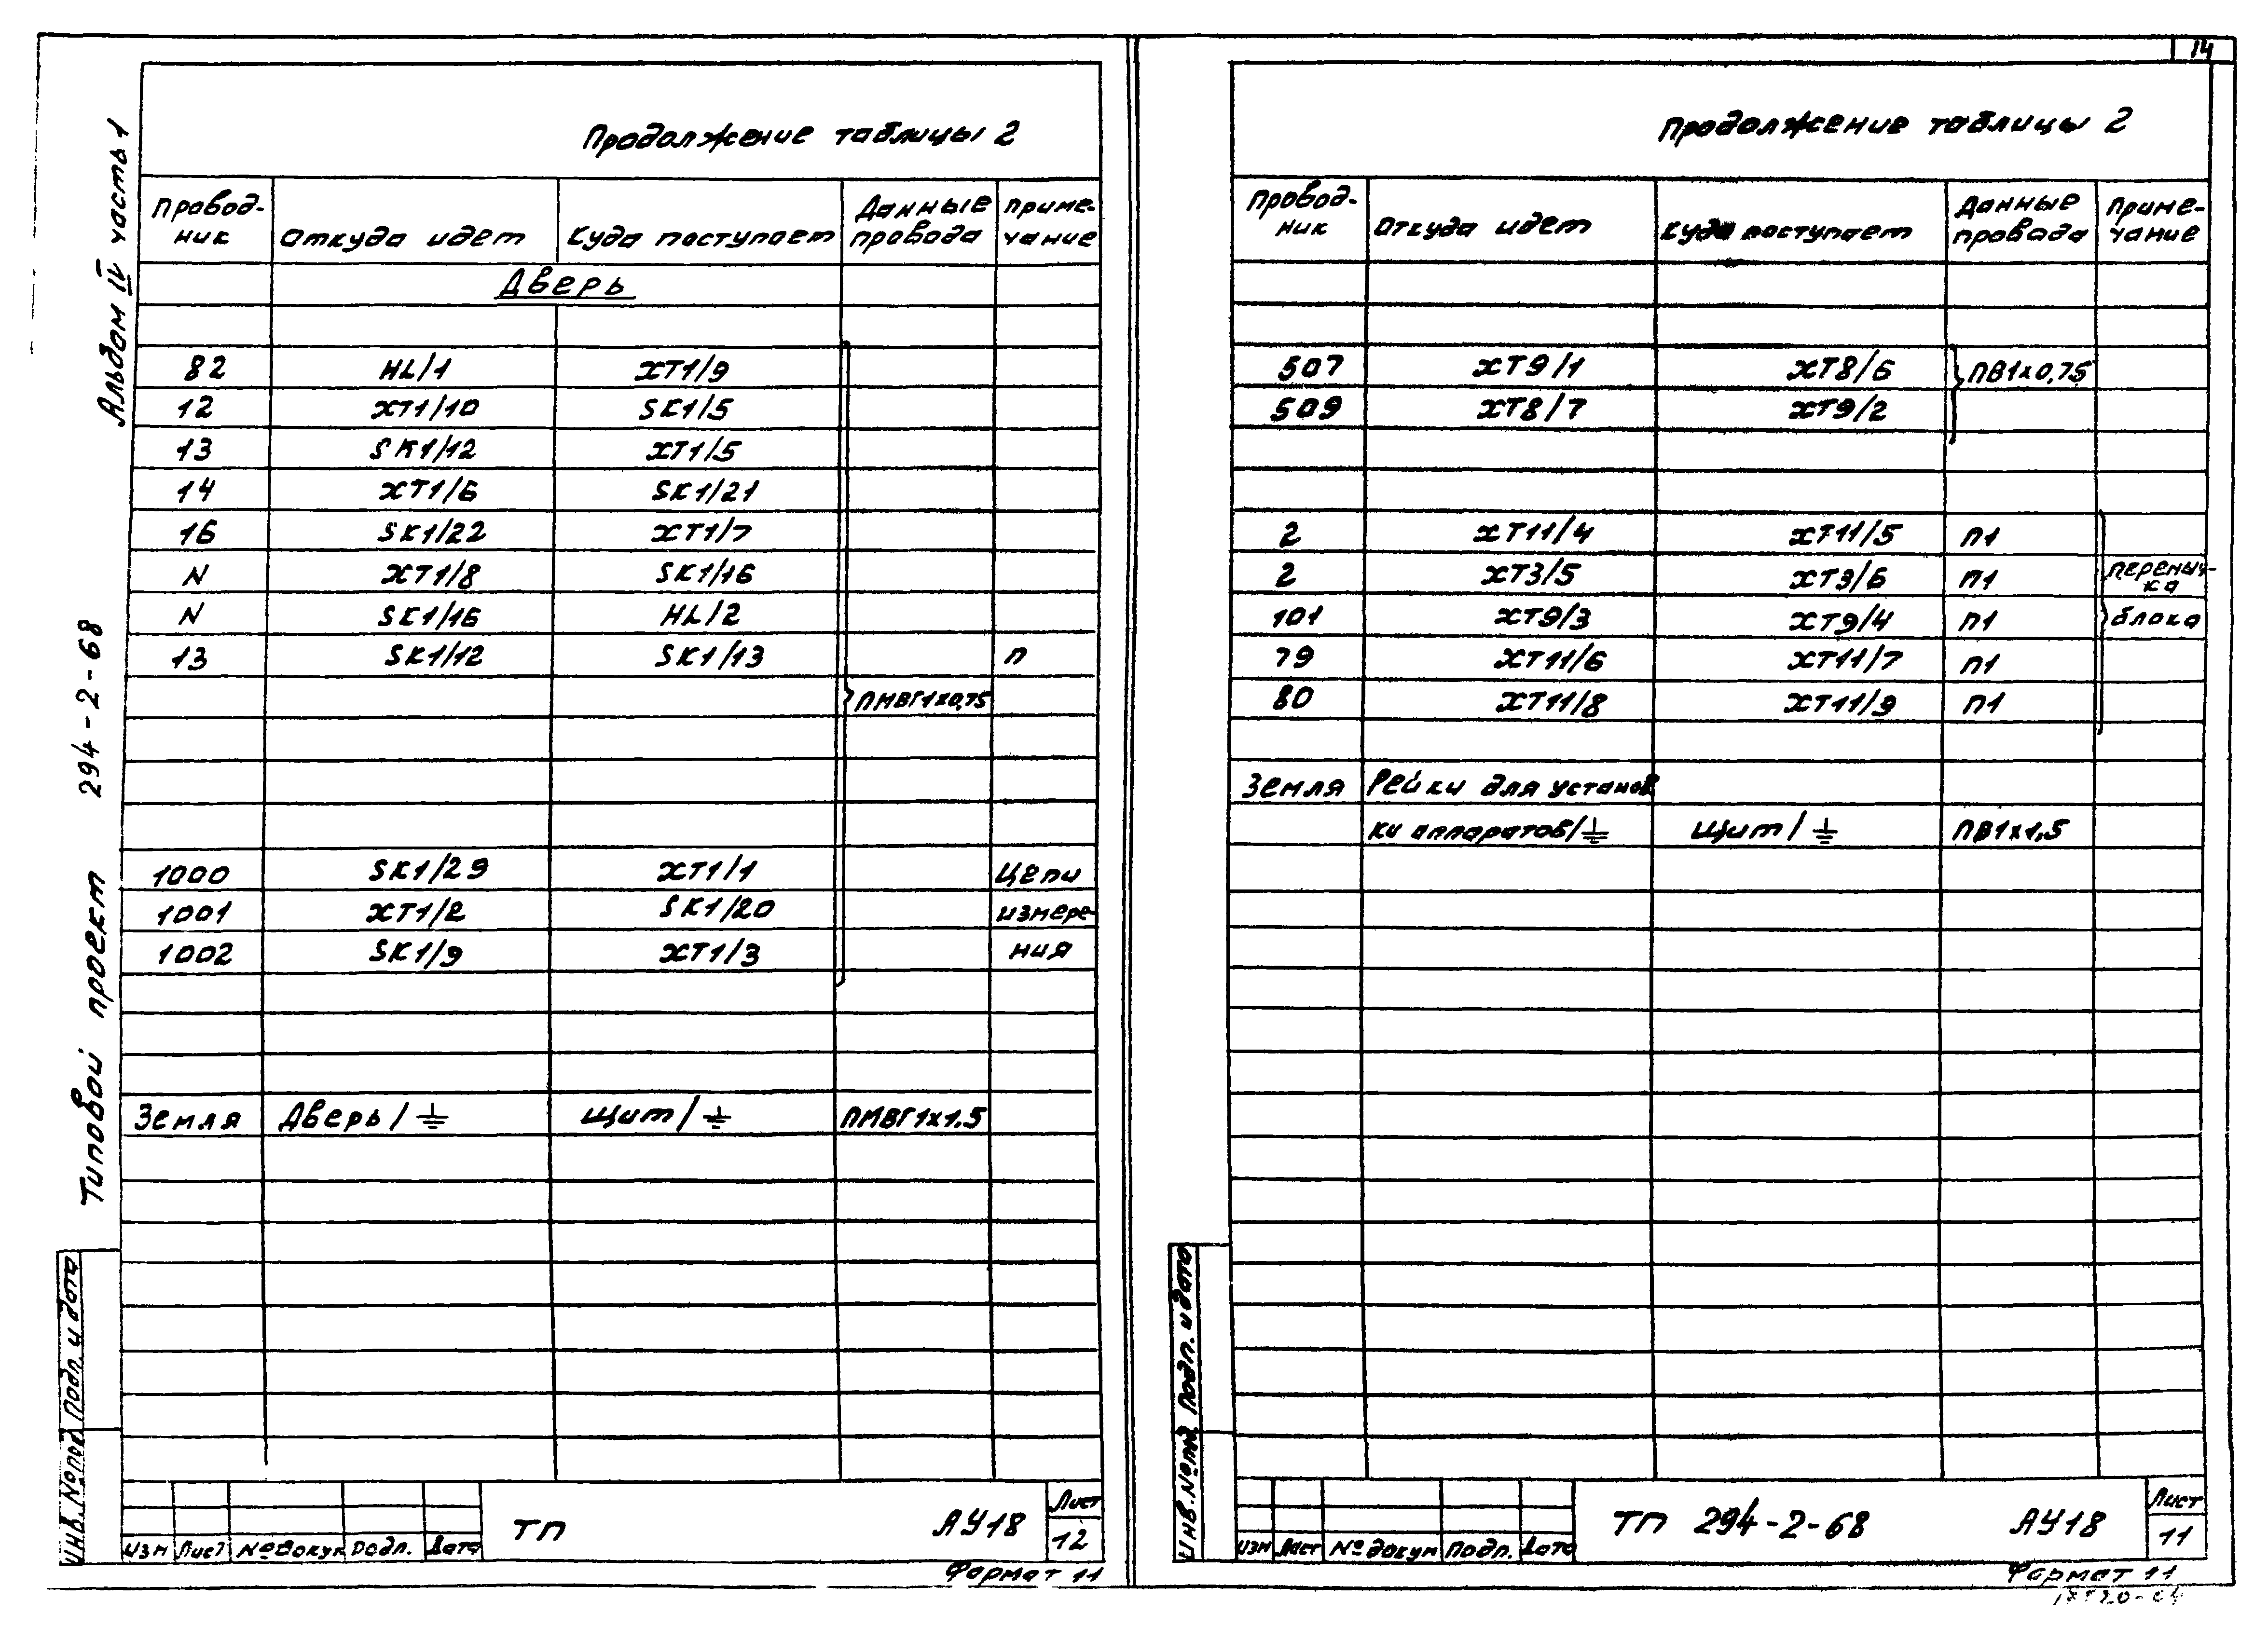 14
Альбом IV часть 1
Типовой проект 294-2-68
Продолжение таблицы 2
Провод-
ник
Откуда идет
Куда поступает
Данные
провода
Приме-
чание
Дверь
82 HL/1 XT1/9
12 XT1/10 SK1/5
13 SK1/12 XT1/5
14 XT1/6 SK1/21
16 SK1/22 XT1/7
N XT1/8 SK1/16
N SK1/16 HL/2
13 SK1/12 SK1/13 п
ПМВГ1x0,75
1000 SK1/29 XT1/1 Цепи
1001 XT1/2 SK1/20 измере-
1002 SK1/9 XT1/3 ния
Земля Дверь/⏚ Щит/⏚ ПМВГ1x1.5
Инв. № под Подп. и дата
Изм Лист № докум Подп. Дата
ТП АУ18
Лист
12
Формат 11
Продолжение таблицы 2
Провод-
ник
Откуда идет
Куда поступает
Данные
провода
Приме-
чание
507 XT9/1 XT8/6 ПВ1x0,75
509 XT8/7 XT9/2
2 XT11/4 XT11/5 П1
2 XT3/5 XT3/6 П1 перемыч-
ка
101 XT9/3 XT9/4 П1 блока
79 XT11/6 XT11/7 П1
80 XT11/8 XT11/9 П1
Земля Рейки для установ
ки аппаратов/⏚ Щит/⏚ ПВ1x1,5
Инв. № под Подп. и дата
Изм Лист № докум Подп. Дата
ТП 294-2-68 АУ18
Лист
11
Формат 11